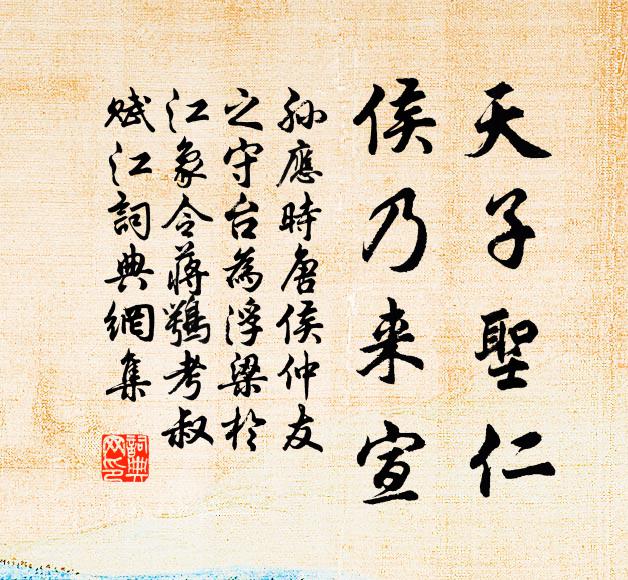 天子聖仁
侯乃来宣
孙應時唐侯仲友
之守台為浮梁於
江象令蒋鶚考叔
赋江詞典網集
詞典网印